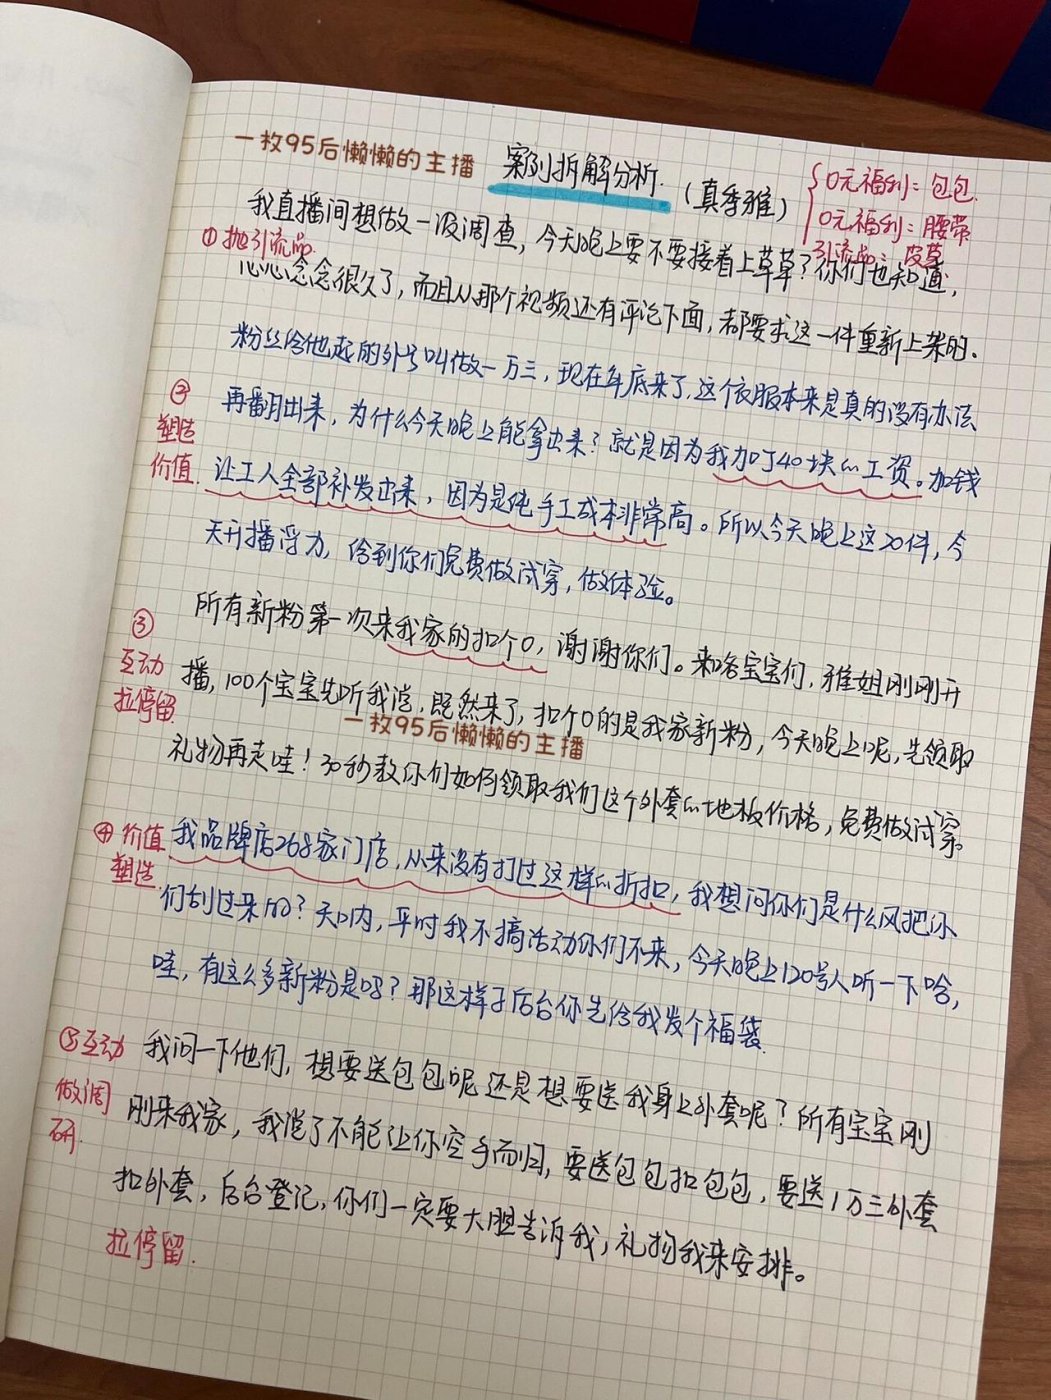 一枚95后懒懒的主播
案例拆解分析.
(真季雅)
0元福利:包包.
0元福利:腰带
引流品:皮草
我直播间想做一波调查,今天晚上要不要接着上草草?你们也知道,
①抛引流品
心心念念很久了,而且从那个视频还有评论下面,都要求这一件重新上架的.
粉丝给他起的外号叫做一万三,现在年底来了,这个衣服本来是真的没有办法
②
再翻出来,为什么今天晚上能拿出来?就是因为我加了40块的工资。加钱
塑造
价值.
让工人全部补发出来,因为是纯手工成本非常高。所以今天晚上这20件,今
天开播浮力,给到你们免费做试穿,做体验。
③
所有新粉第一次来我家的扣个0,谢谢你们。来咯宝宝们,雅姐刚刚开
互动
播,100个宝宝先听我说,既然来了,扣个0的是我家新粉,今天晚上呢,先领取
拉停留.
一枚95后懒懒的主播
礼物再走哇!30秒教你们如何领取我们这个外套的地板价格,免费做试穿
④价值
我品牌店268家门店,从来没有打过这样的折扣,我想问你们是什么风把你
塑造.
们刮过来的?天口内,平时我不搞活动你们不来,今天晚上120号人听一下哈,
哇,有这么多新粉是吗?那这样子后台你先给我发个福袋.
⑤互动
我问一下他们,想要送包包呢还是想要送我身上外套呢?所有宝宝刚
做调
刚来我家,我说了不能让你空手而归,要送包包扣包包,要送1万三外套
研.
扣外套,后台登记,你们一定要大胆告诉我,礼物我来安排。
拉停留.